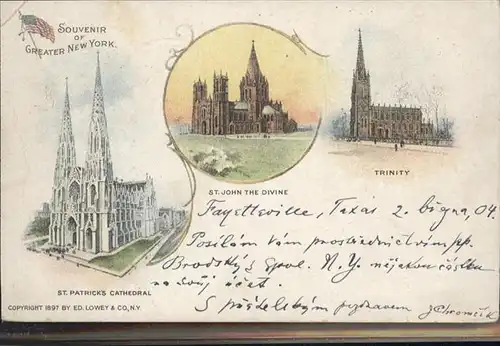 SOUVENIR
OF
GREATER NEW YORK.
ST. JOHN THE DIVINE
TRINITY
Fayetteville, Texas 2. března, 04.
Posílám Vám, prostřednictvím pp.
Brodský & Spol. N.Y. nějakou částku
na můj účet.
S přátelským pozdravem J Chromčík
ST. PATRICK'S CATHEDRAL
COPYRIGHT 1897 BY ED. LOWEY & CO., N.Y.